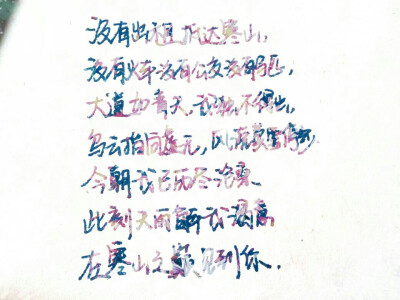 没有出租抵达寒山,
没有火车没有公交没有马匹,
大道如青天,我独不得出,
乌云指同虚无,风
今朝我已历尽沧桑、
此刻天雨解我渴意,
在寒山之巅见到你.